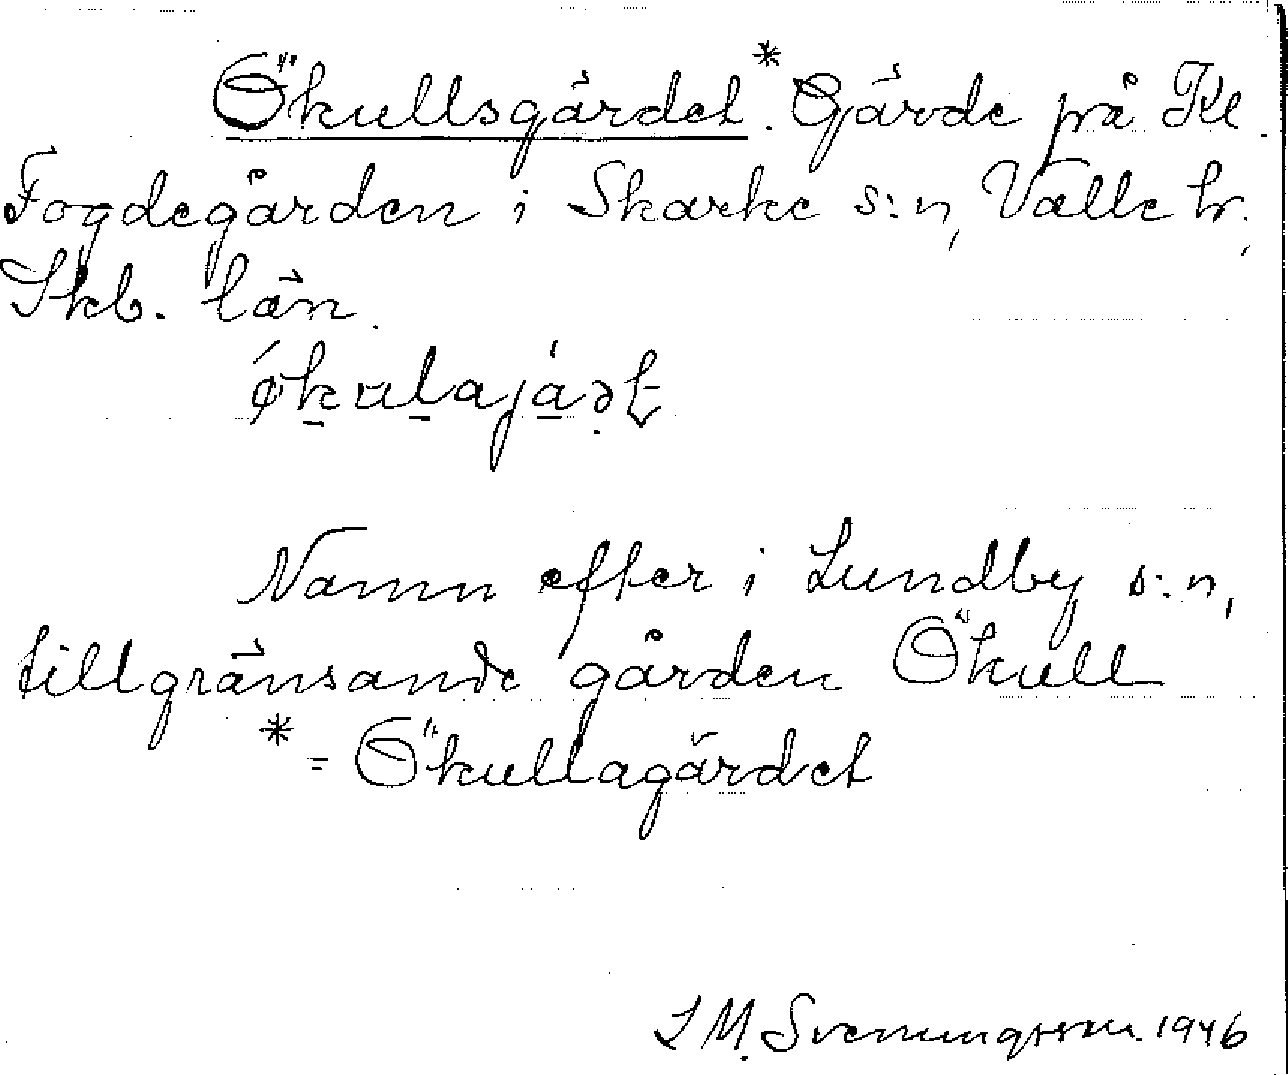 Ökullsgärdet.* Gärde på Kl.
Fogdegården i Skarke s:n, Valle hr.,
Skb. län.
Namn efter i Lundby s:n,
tillgränsande gården Ökull
* = Ökullagärdet
S M. Svenungsson. 1946